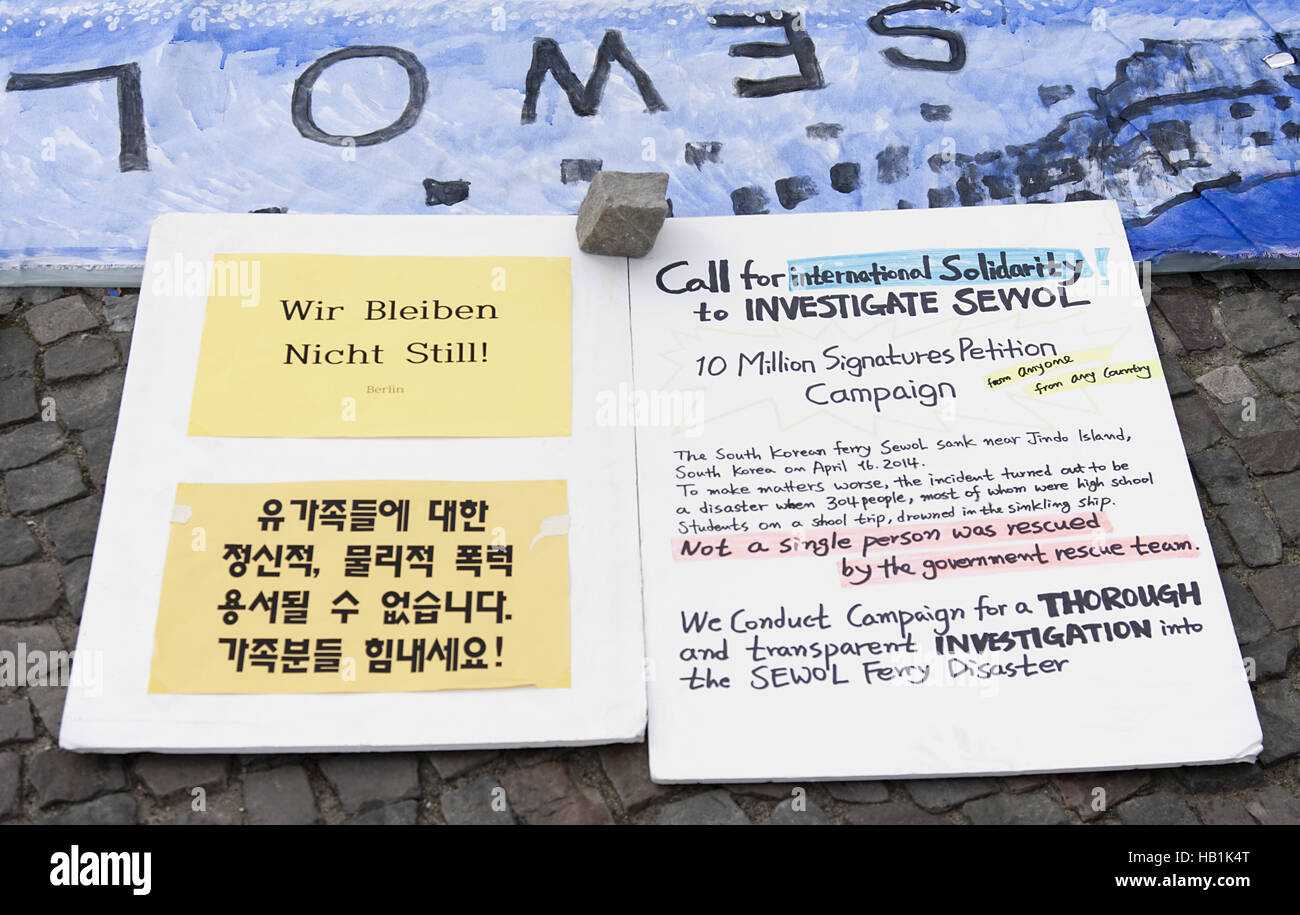 SEWOL
Wir Bleiben
Nicht Still!
Berlin
유가족들에 대한
정신적, 물리적 폭력
용서될 수 없습니다.
가족분들 힘내세요!
Call for international Solidarity!
to INVESTIGATE SEWOL
10 Million Signatures Petition
Campaign
from anyone
from any Country
The South Korean ferry Sewol sank near Jindo Island,
South Korea on April 16. 2014.
To make matters worse, the incident turned out to be
a disaster when 304 people, most of whom were high school
students on a shool trip, drowned in the sinkling ship.
Not a single person was rescued
by the government rescue team.
We Conduct Campaign for a THOROUGH
and transparent INVESTIGATION into
the SEWOL Ferry Disaster
alamy
alamy
Image ID: HB1K4T
www.alamy.com